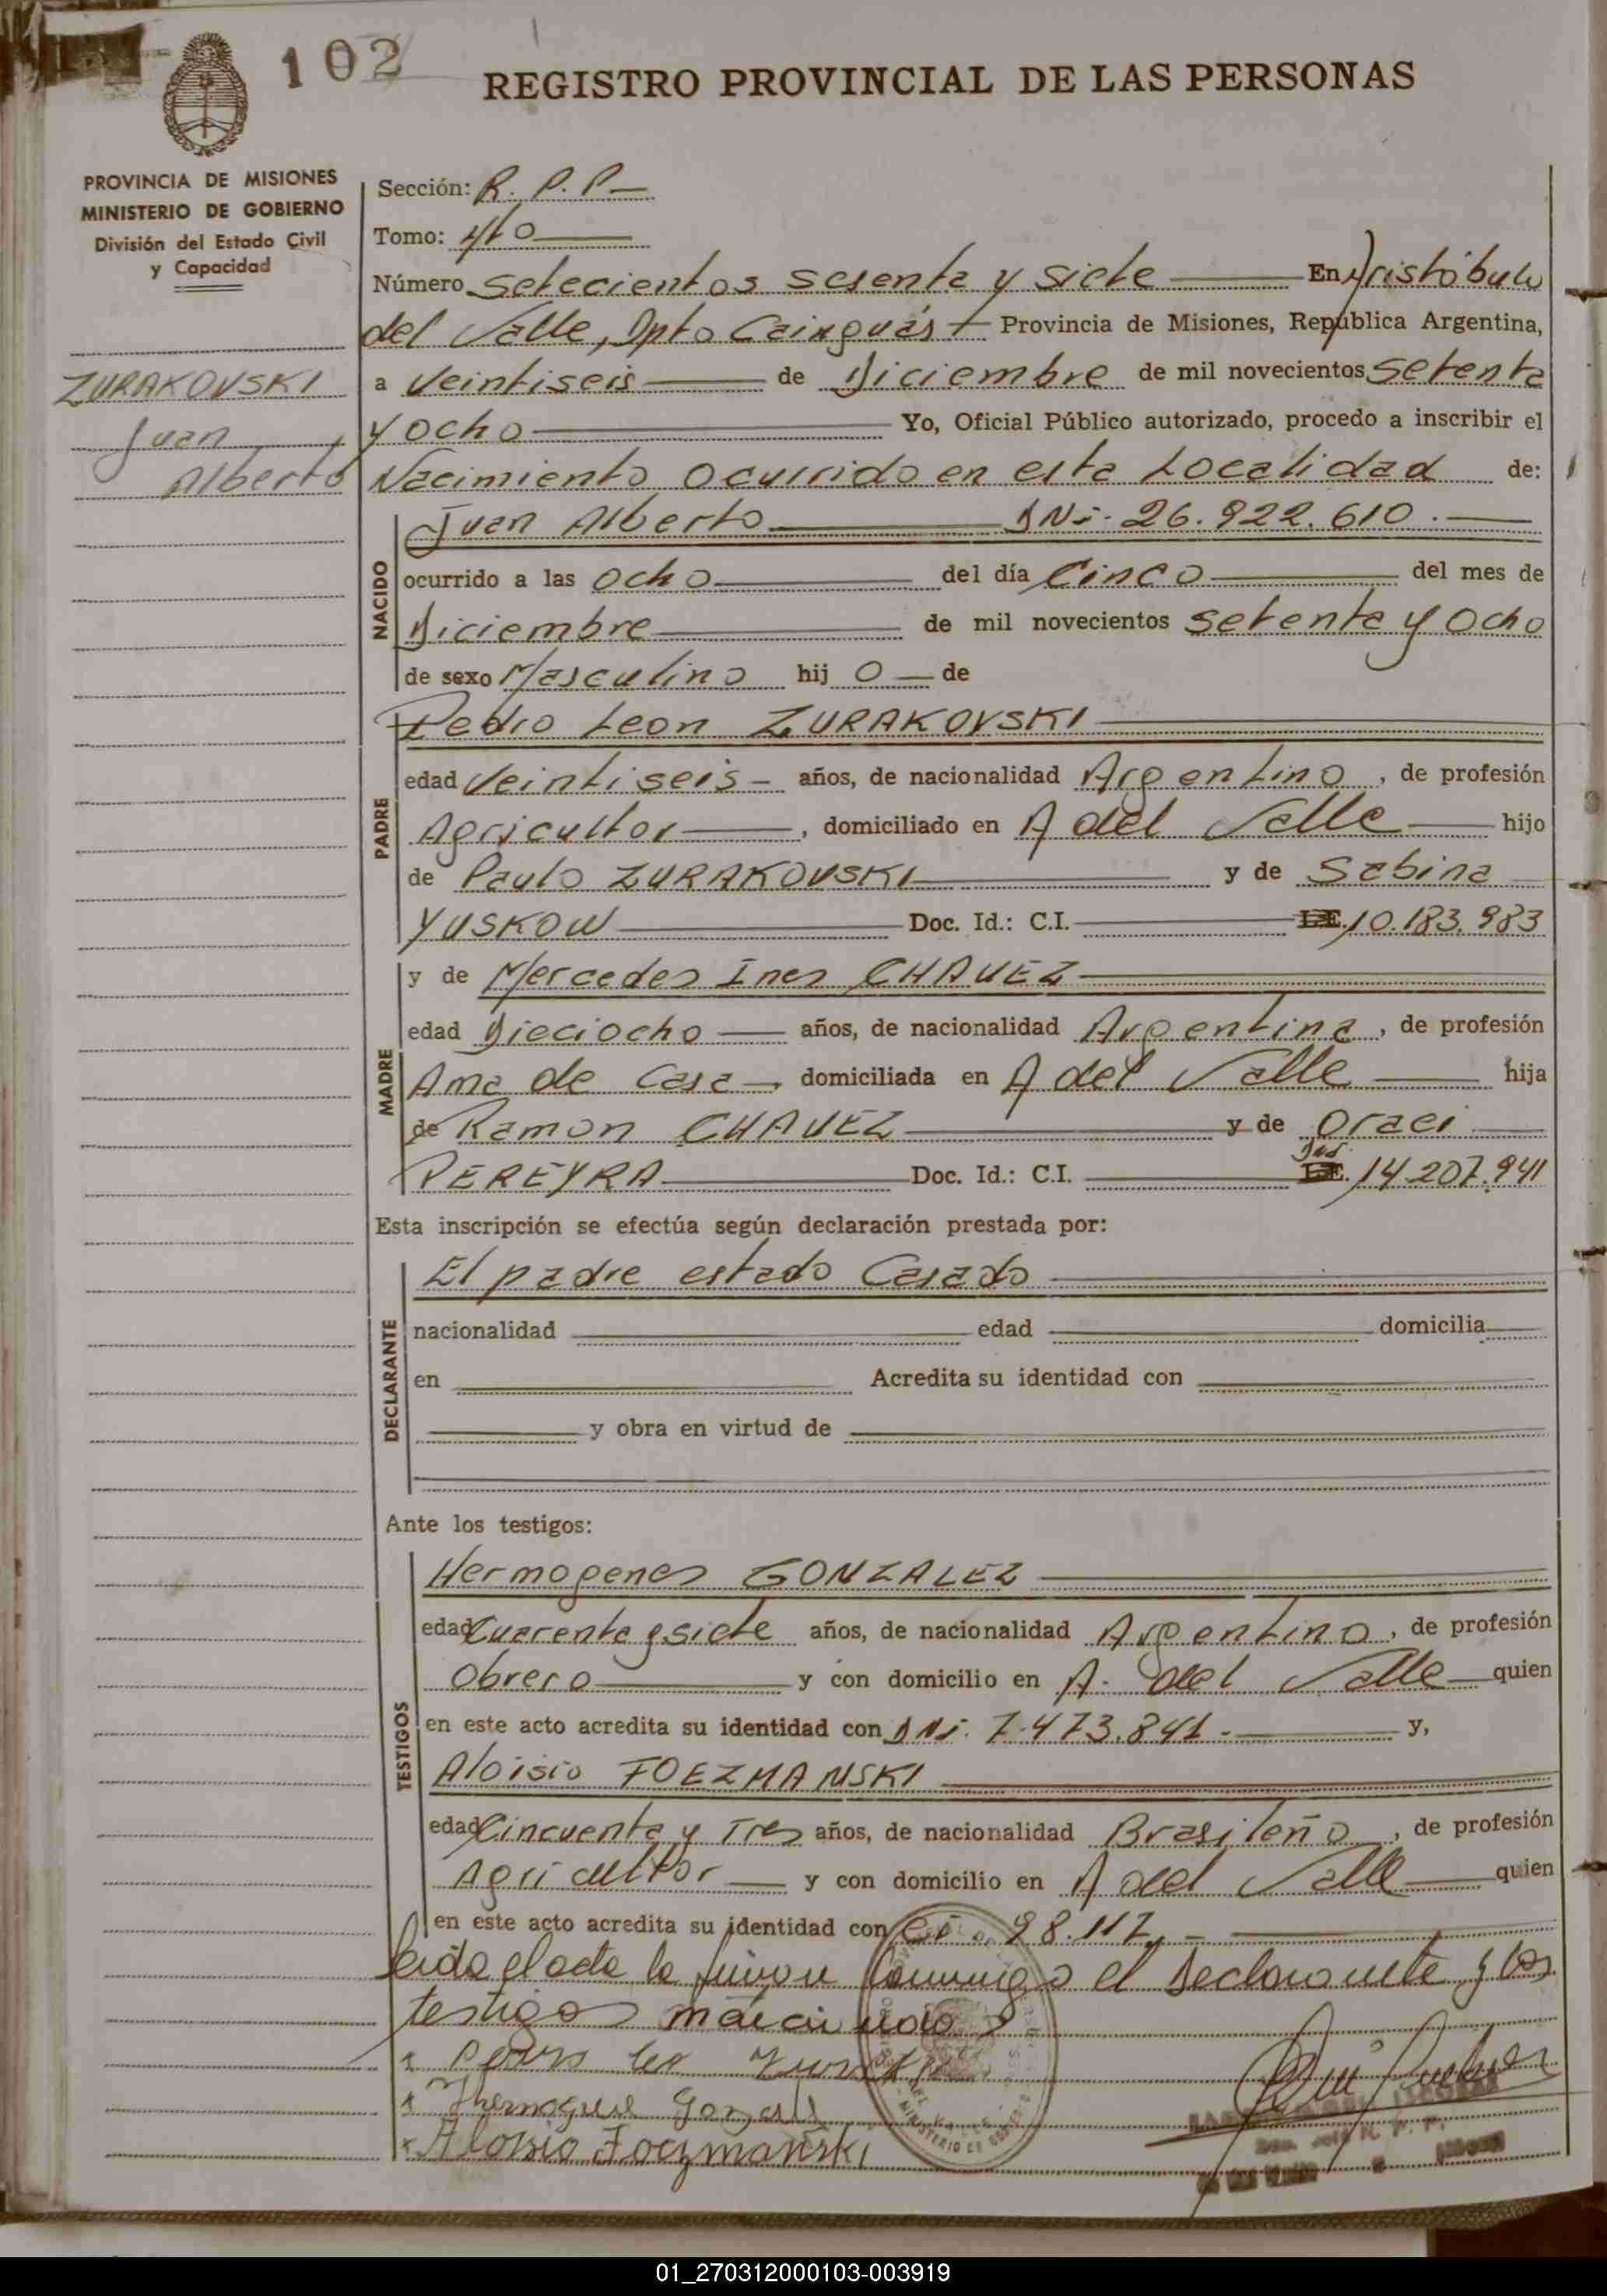 102
REGISTRO PROVINCIAL DE LAS PERSONAS
PROVINCIA DE MISIONES
MINISTERIO DE GOBIERNO
División del Estado Civil
y Capacidad
ZURAKOVSKI
Juan
Alberto
Sección: R. P. P.
Tomo: 4to
Número Setecientos sesenta y siete En Aristóbulo
del Valle, Dpto Cainguás Provincia de Misiones, República Argentina,
a Veintiseis de Diciembre de mil novecientos Setenta
y ocho Yo, Oficial Público autorizado, procedo a inscribir el
Nacimiento ocurrido en esta Localidad de:
NACIDO
Juan Alberto DNi. 26.922.610.
ocurrido a las Ocho del día Cinco del mes de
Diciembre de mil novecientos setenta y ocho
de sexo Masculino hij o de
PADRE
Pedro Leon ZURAKOVSKI
edad Veintiseis años, de nacionalidad Argentino, de profesión
Agricultor, domiciliado en A del Valle hijo
de Paulo ZURAKOVSKI y de Sabina
YUSKOW Doc. Id.: C.I. L.E. 10.183.983
MADRE
y de Mercedes Ines CHAVEZ
edad Dieciocho años, de nacionalidad Argentina, de profesión
Ama de Casa, domiciliada en A del Valle hija
de Ramon CHAVEZ y de Oraci
PEREYRA Doc. Id.: C.I. L.E. 14.207.941
Esta inscripción se efectúa según declaración prestada por:
DECLARANTE
El padre estado Casado
nacionalidad edad domicilia
en Acredita su identidad con
y obra en virtud de
Ante los testigos:
TESTIGOS
Hermogenes GONZALEZ
edad Cuarenta y siete años, de nacionalidad Argentino, de profesión
Obrero y con domicilio en A. del Valle quien
en este acto acredita su identidad con DNi. 7.473.841.- y,
Aloisio FOEZMANSKI
edad Cincuenta y Tres años, de nacionalidad Brasileño, de profesión
Agricultor y con domicilio en A del Valle quien
en este acto acredita su identidad con Ci. 98.117.-
Leida el acta la firman conmigo el Declarante y los
testigos
Aloisio Foezmanski
MINISTERIO DE GOBIERNO
01_270312000103-003919